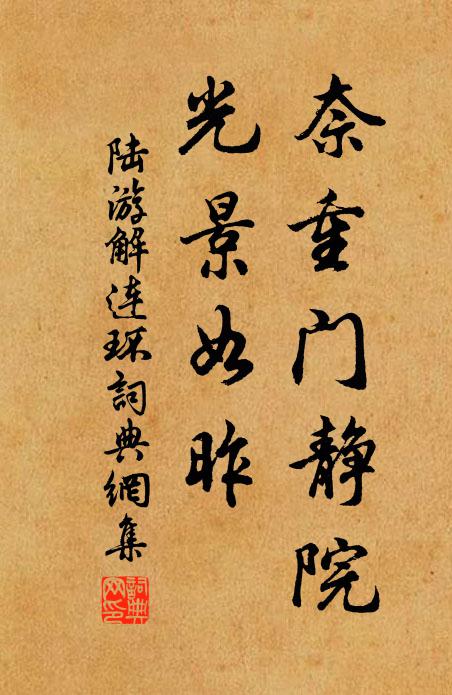 奈重门静院
光景如昨
陆游解连环詞典網集
詞典网印